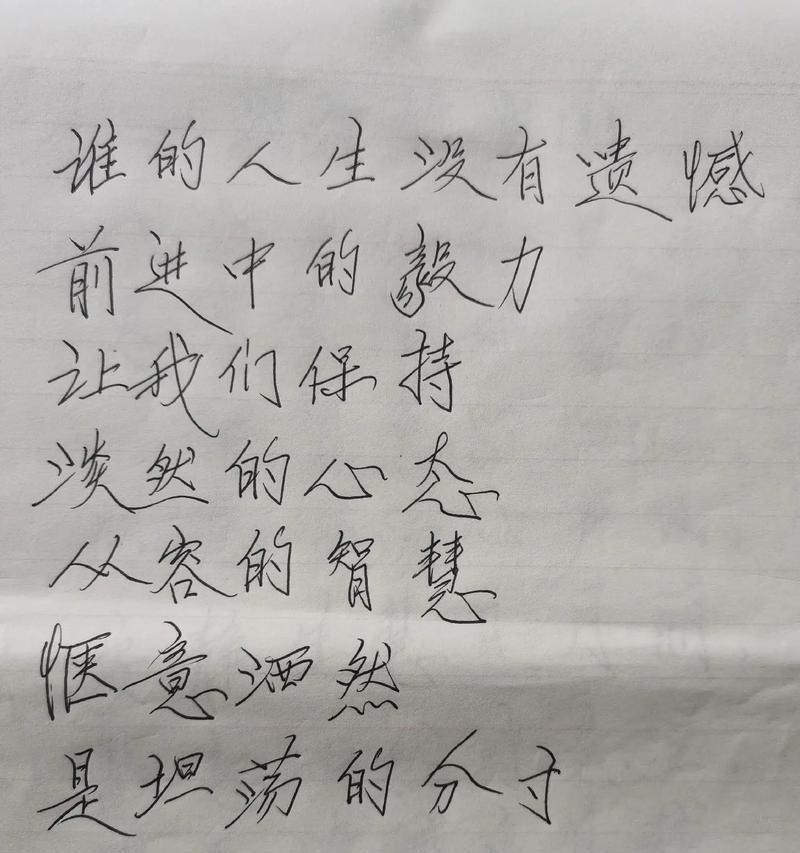 谁的人生没有遗憾
前进中的毅力
让我们保持
淡然的心态
从容的智慧
惬意洒然
是坦荡的分寸